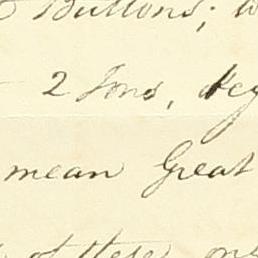 Buttons; w
2 Sons, key
mean Great
of these